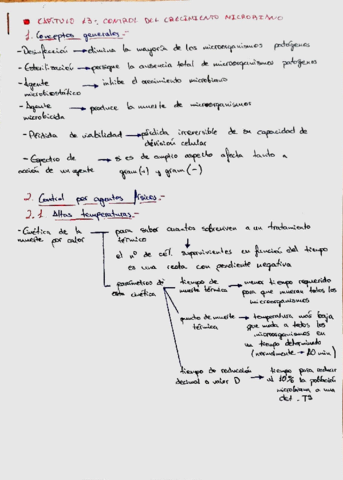 CAPÍTULO 13.- CONTROL DEL CRECIMIENTO MICROBIANO
1. Conceptos generales.-
-Desinfección → elimina la mayoría de los microorganismos patógenos
-Esterilización → persigue la ausencia total de microorganismos patógenos
-Agente microbiostático → inhibe el crecimiento microbiano
-Agente microbicida → produce la muerte de microorganismos
-Pérdida de viabilidad → pérdida irreversible de su capacidad de
división celular
-Espectro de acción de un agente → si es de amplio espectro afecta tanto a
gram(+) y gram(-)
2. Control por agentes físicos.-
2.1 Altas temperaturas.-
-Cinética de la muerte por calor
para saber cuantos sobreviven a un tratamiento
térmico
el nº de cél. supervivientes en función del tiempo
es una recta con pendiente negativa
parámetros de esta cinética
tiempo de muerte térmica → menor tiempo requerido
para que mueran todos los
microorganismos
punto de muerte térmica → temperatura más baja
que mata a todos los
microorganismos en
un tiempo determinado
(normalmente → 10 min)
tiempo de reducción decimal o valor D → tiempo para reducir
al 10% la población
microbiana a una
det. Tª